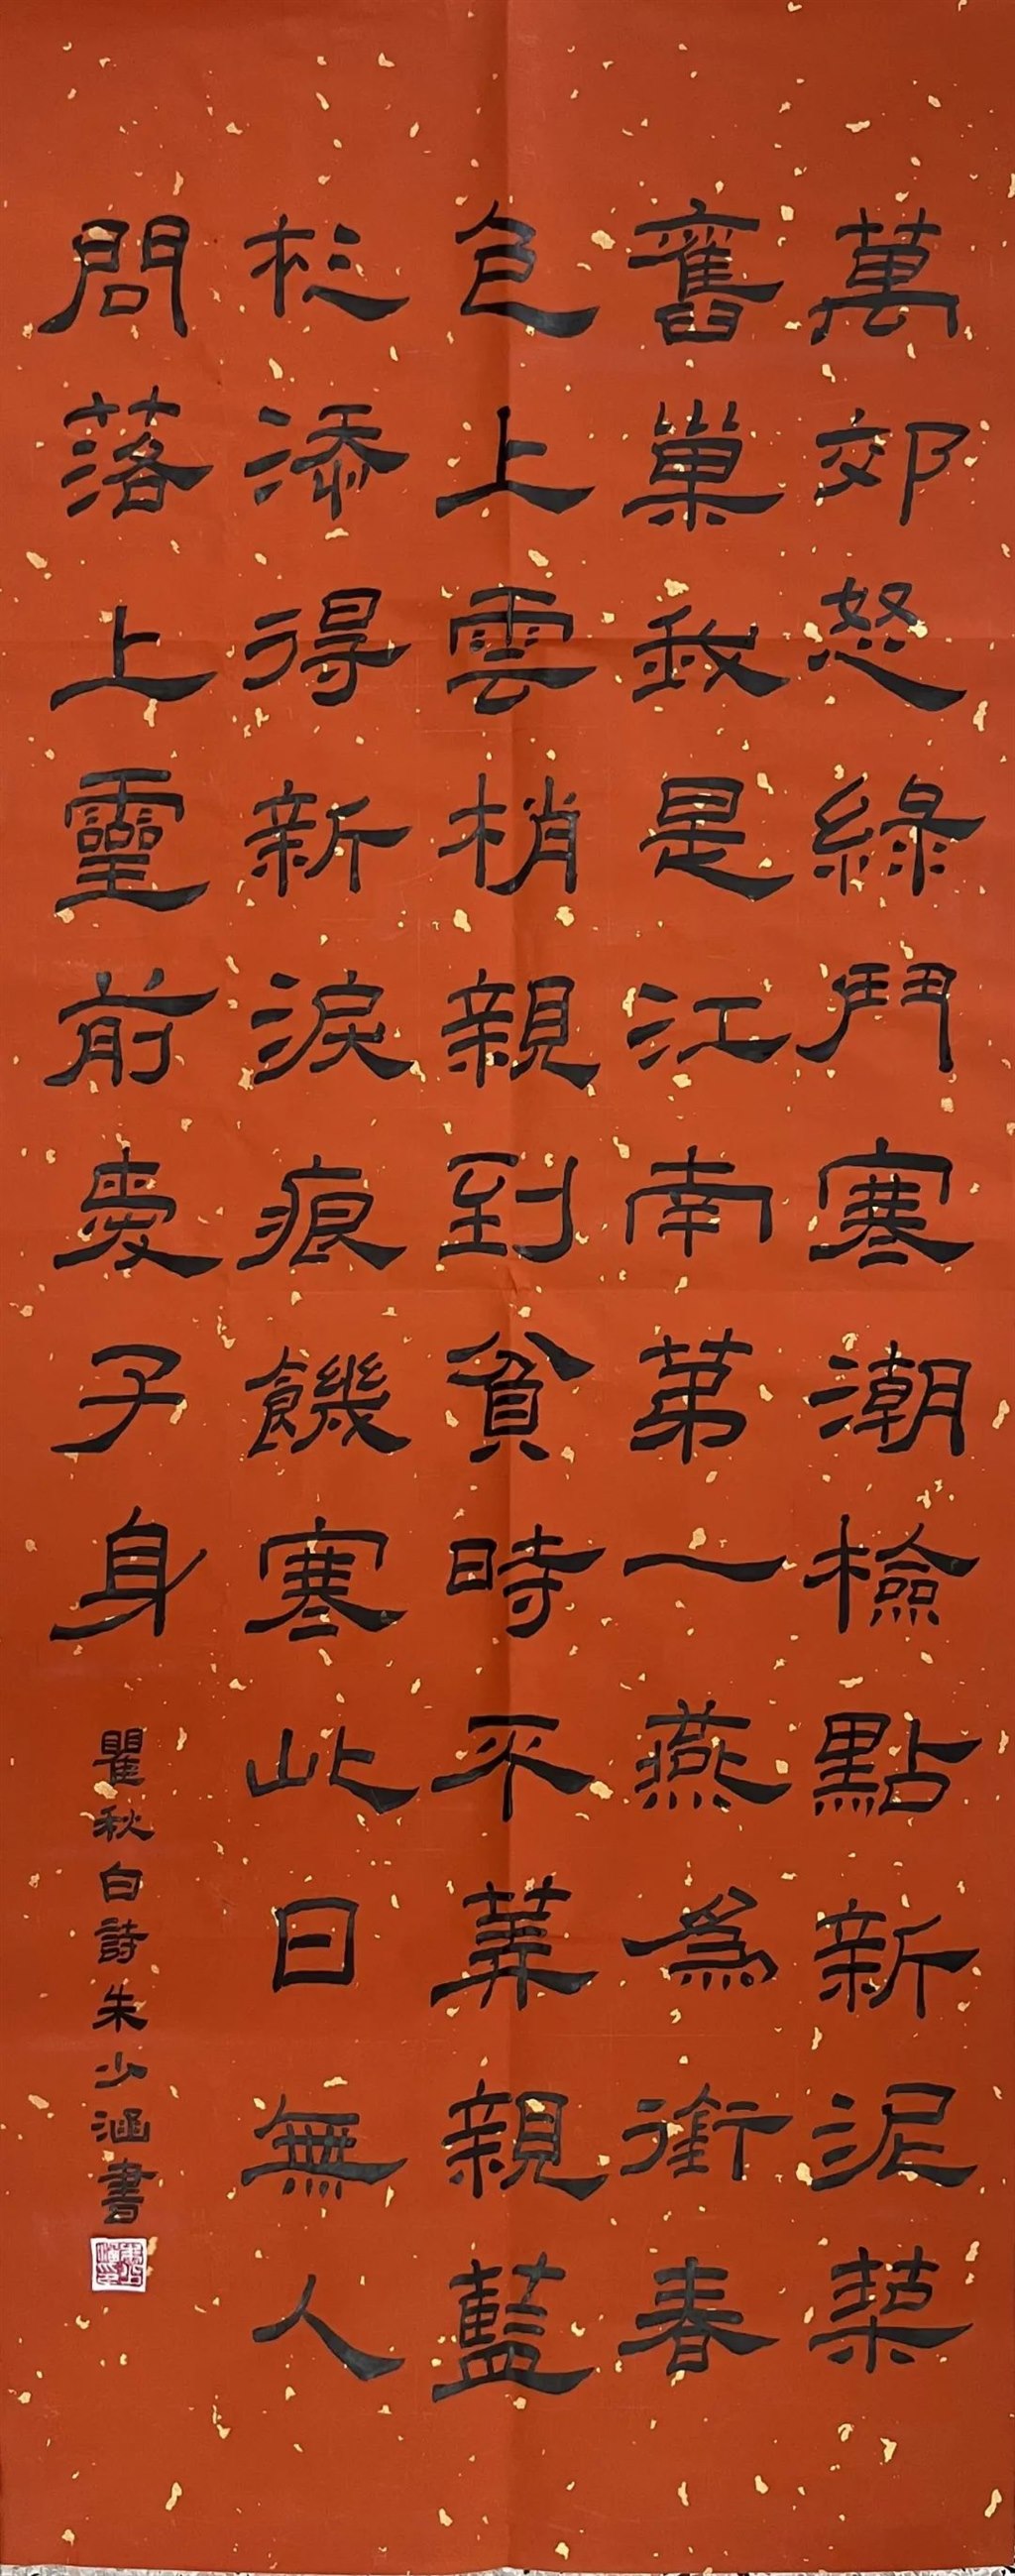 萬郊怒綠鬥寒潮檢點新泥築
舊巢我是江南第一燕為銜春
色上雲梢親到貧時不算親藍
衫添得新淚痕饑寒此日無人
問落上靈前愛子身
瞿秋白詩朱少涵書